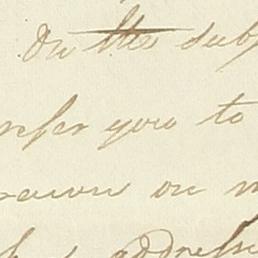 On the sub
refer you to
rawn on m
addresse